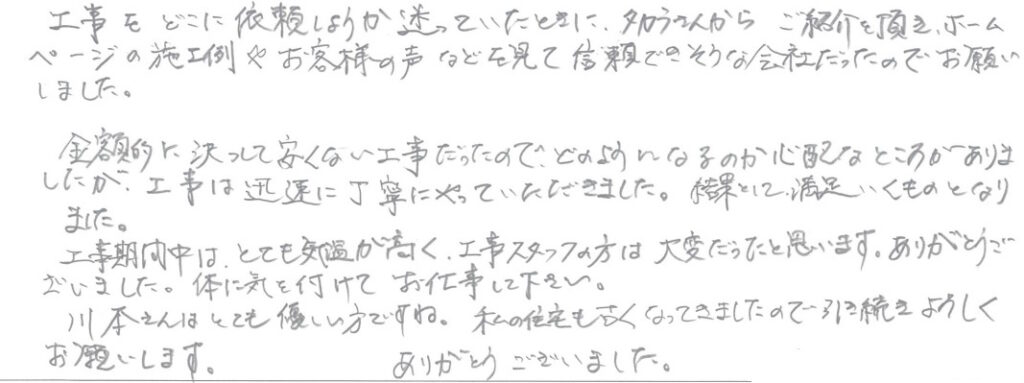 工事をどこに依頼しようか迷っていたときに、タカラさんから ご紹介を頂き、ホーム
ページの施工例やお客様の声などを見て信頼できそうな会社だったのでお願い
しました。
金額的に決っして安くない工事だったので、どのようになるのか心配なところがありま
したが、工事は迅速に丁寧にやっていただきました。結果として、満足いくものとなり
ました。
工事期間中は、とても気温が高く、工事スタッフの方は大変だったと思います。ありがとうご
ざいました。体に気を付けてお仕事して下さい。
川本さんはとても優しい方ですね。私の住宅も古くなってきましたので引き続きよろしく
お願いします。 ありがとうございました。